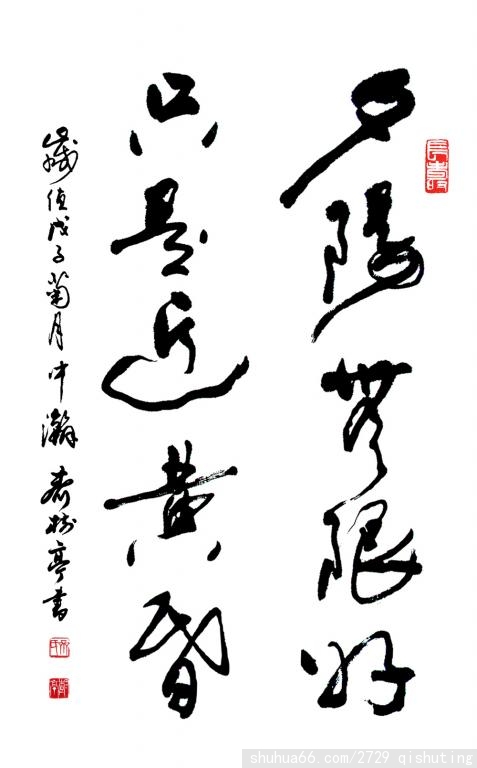 夕陽無限好
只是近黄昏
歲值戊子菊月中瀚齐树亭書
shuhua66.com/2729 qishuting